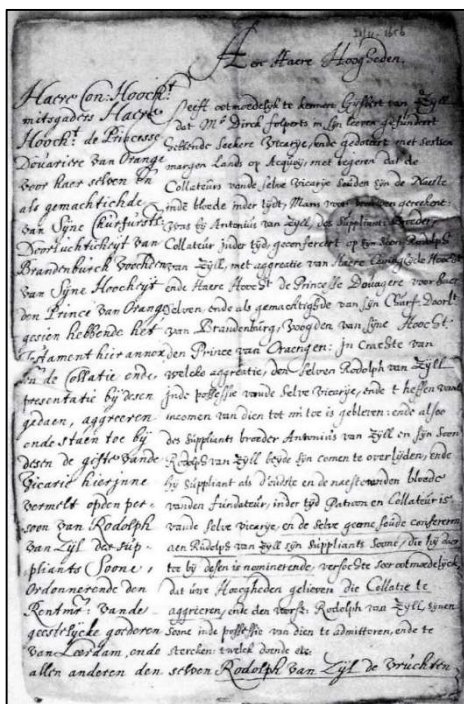 Aen Haere Hoogheden.
Haere Con: Hoocht
mitsgaders Haere
Hoocht. de Princesse
Douariere van Orange
voor haer selven en
als gemachtichde
van Sijne Churfurstl
Doorluchticheyt van
Brandenburch Voochden
van Sijne Hoocheyt
den Prince van Orange
gesien hebbende het
Testament hier annex
en de Collatie ende
presentatie bij desen
gedaen, aggreeren
ende staen toe bij
desen de gifte vande
Vicarie hierinne
vermelt op den per-
soen van Rodolph
van Zijl des sup-
pliants Soone,
Ordonnerende den
Rentmr. vande
geestelijcke goederen
van Leerdam, ende
allen anderen den selven Rodolph van Zijl de vruchten
Geeft ootmoedelijck te kennen Gijsbert van Zyll
dat Mr. Dirck folperts in sijn leven gefundeert
hebbende Seekere Vicarije, ende gedoteert met sestien
margen Lands op Acquoij, met begeren dat de
Collateurs vande selve Vicarije souden sijn de Naeste
inde bloede inder tijdt, Mans voor vrouwen gerekent:
Was bij Antonius van Zyll, des Suppliants Broeder,
Collateur inder tijd, geconfereert op sijn Soon Rodolph
van Zyll, met aggreatie van Haere Coninglycke Hoocht
ende Haere Hoocht de Princesse Douagere voor haer
selven, ende als gemachtigde van sijn Churf. Doorlt
van Brandenburg, Vooghden van Sijne Hoocht.
den Prince van Oraengen: in Crachte van
welcke aggreatie, den selven Rodolph van Zyll
inde possessie vande selve Vicarije, ende t heffen vant
incomen van dien tot nu toe is gebleven: ende alsoo
des Suppliants broeder Antonius van Zyll en sijn Soon
Rodolph van Zyll beyde sijn comen te overlijden, ende
hij Suppliant als d'oudste en de naeste vanden bloede
vanden fundateur, inder tijd Patroon en Collateur is
vande selve Vicarije, en de selve geerne soude confereren
aen Rudolph van Zyll sijn Suppliants Soone, die hij daer
toe bij desen is nominerende, versochte seer ootmoedelijck,
dat uwe Hoogheden gelieven die Collatie te
aggreeren, ende den voorsz. Rodolph van Zyll, synen
Soone inde possessie van dien te admitteren, ende te
stercken: twelck doende etc.